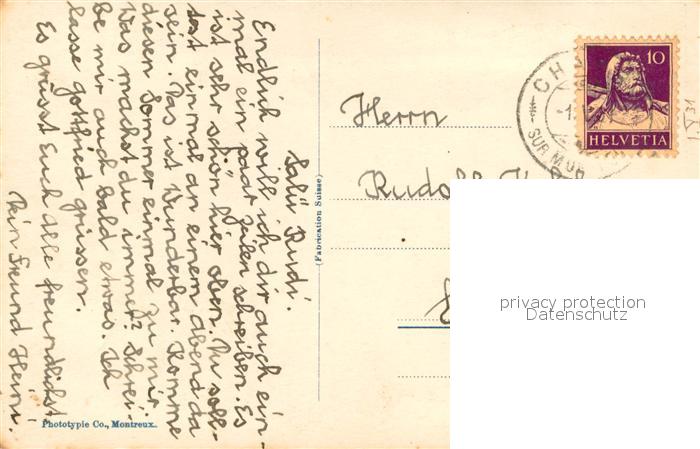 Salü Rudi.
Endlich will ich dir auch ein-
mal ein paar Zeilen schreiben. Es
ist sehr schön hier oben. Du soll-
test einmal an einem Abend da
sein. Das ist Wunderbar. Komme
diesen Sommer einmal zu mir.
Was machst du immer? Schrei-
be mir auch bald etwas. Ich
lasse Gottfried grüssen.
Es grüsst Euch alle freundlichst
Dein Freund Heini.
Phototypie Co., Montreux.
(Fabrication Suisse)
Herrn
Rudolf
10
HELVETIA
SUR MO
privacy protection
Datenschutz